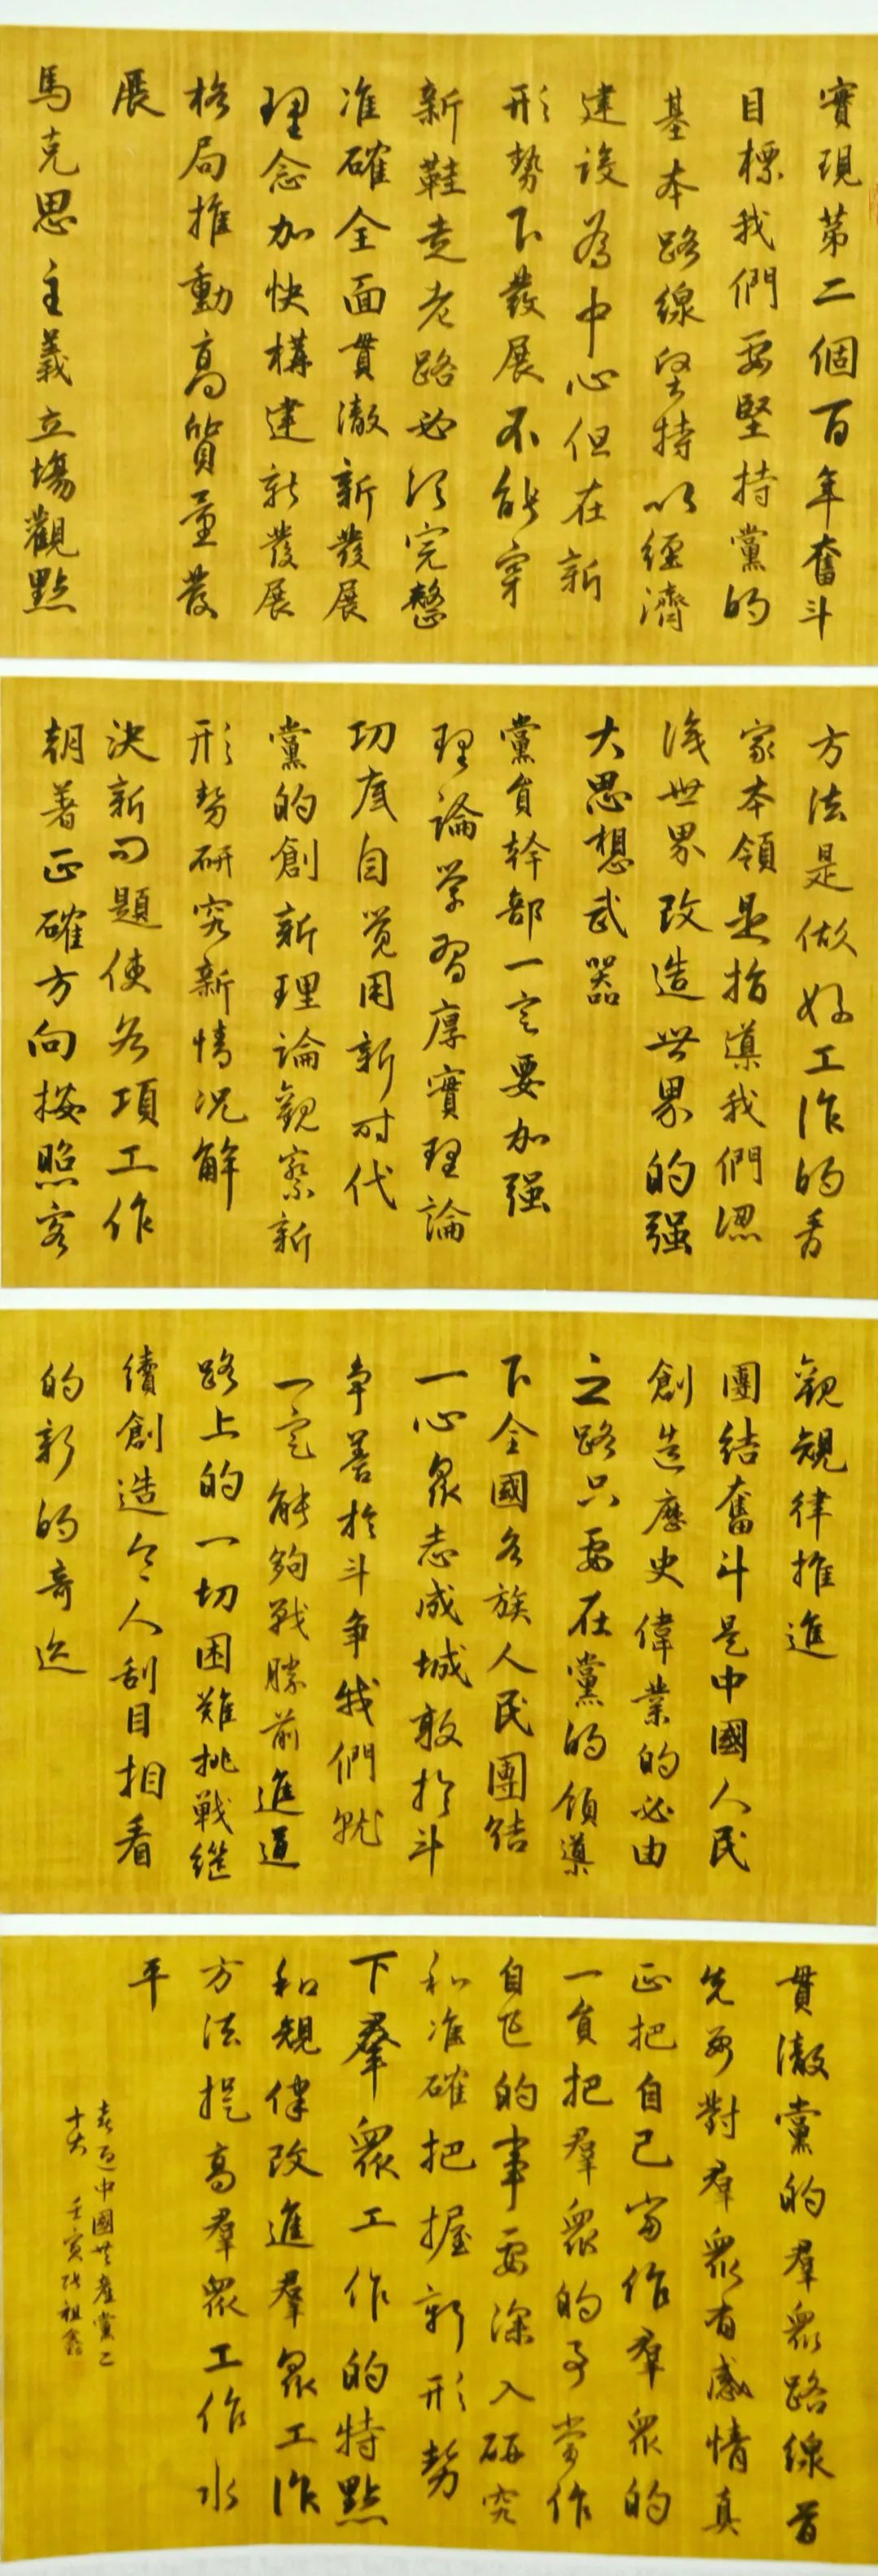 實現第二個百年奮斗
目標我們要堅持黨的
基本路線堅持以經濟
建設為中心但在新
形勢下發展不能穿
新鞋走老路必須完整
准確全面貫澈新發展
理念加快構建新發展
格局推動高質量發
展
馬克思主義立場觀點
方法是做好工作的看
家本領是指導我們認
識世界改造世界的强
大思想武器
黨員幹部一定要加强
理論学習厚實理論
功底自覚用新时代
黨的創新理論觀察新
形勢研究新情况解
決新问題使各項工作
朝著正確方向按照客
觀規律推進
團結奮斗是中國人民
創造歷史偉業的必由
之路只要在黨的領導
下全國各族人民團結
一心眾志成城敢於斗
争善於斗争我們就
一定能夠戰勝前進道
路上的一切困難挑戰继
續創造令人刮目相看
的新的奇迹
貫澈黨的羣眾路線首
先要對羣眾有感情真
正把自己当作羣眾的
一員把羣眾的事當作
自己的事要深入研究
和准確把握新形勢
下羣眾工作的特點
和規律改進羣眾工作
方法提高羣眾工作水
平
喜迎中國共產黨二
十大 壬寅张祖鑫